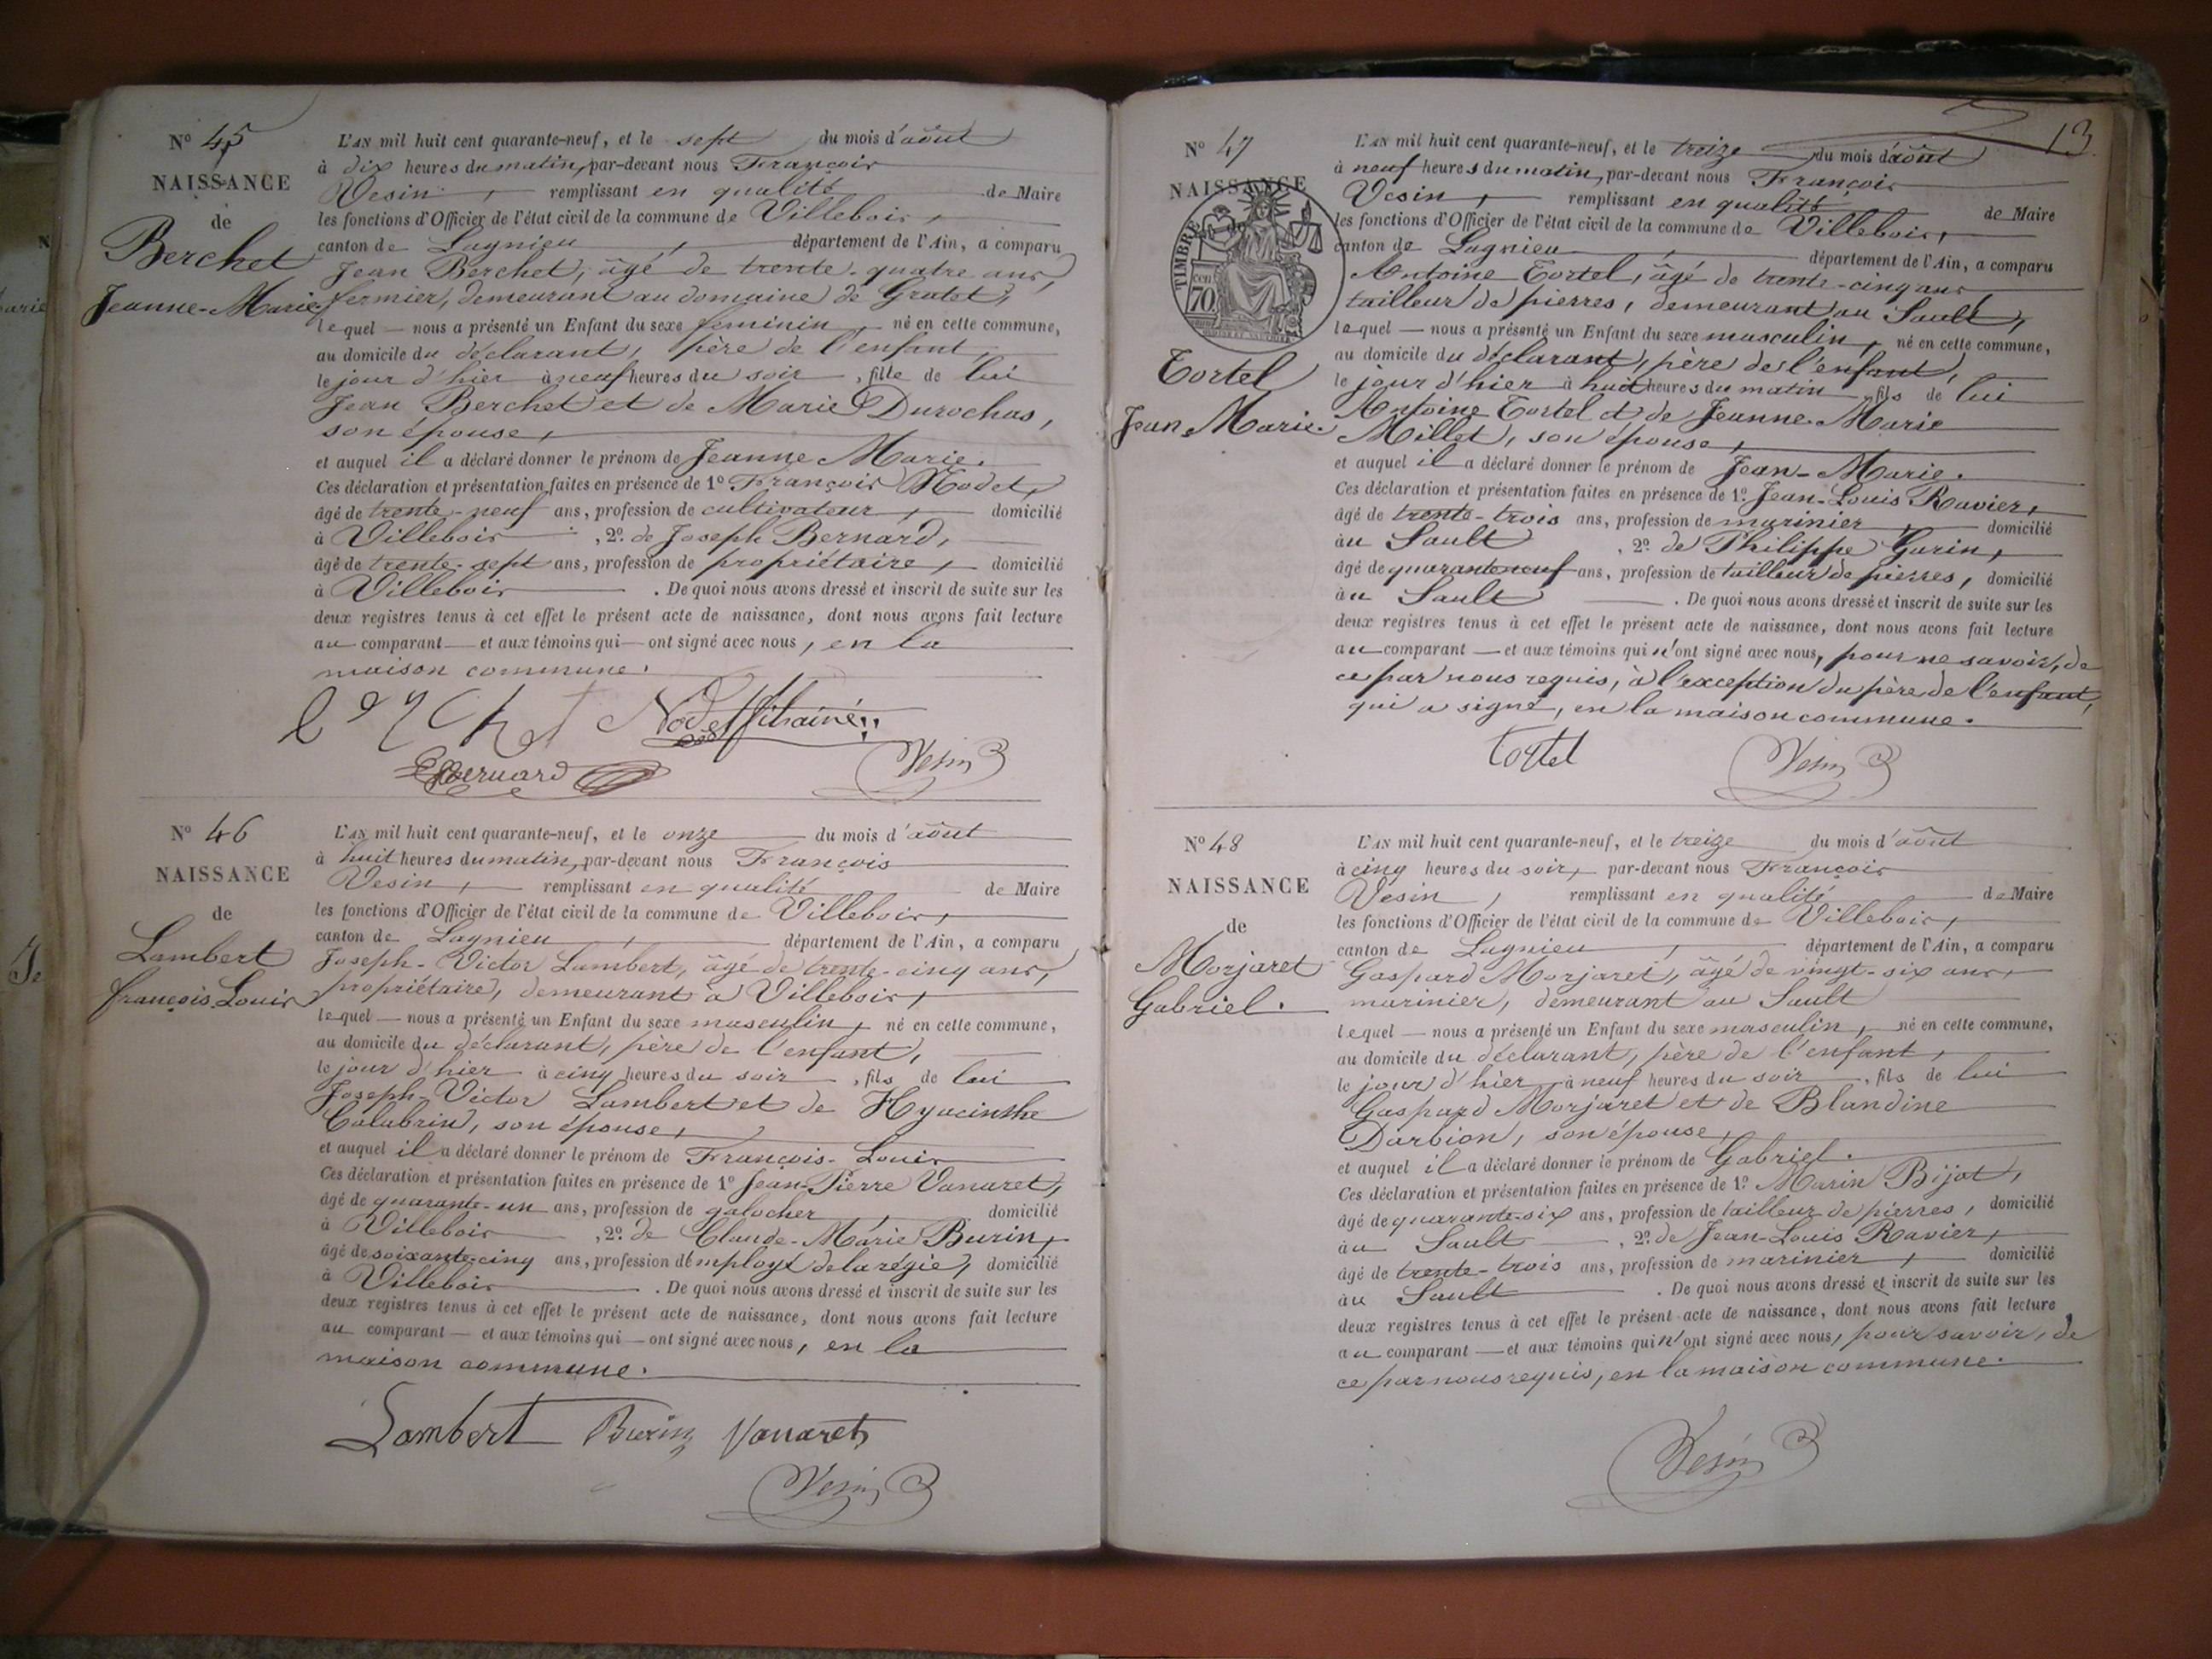 N° 45
NAISSANCE
de
Berchet
Jeanne-Marie
L'AN mil huit cent quarante-neuf, et le sept du mois d'août
à dix heures du matin, par-devant nous François
Vesin, remplissant en qualité de Maire
les fonctions d'Officier de l'état civil de la commune de Villebois,
canton de Lagnieu, département de l'Ain, a comparu
Jean Berchet, âgé de trente-quatre ans,
fermier, demeurant au domaine de Gratet,
lequel nous a présenté un Enfant du sexe féminin, né en cette commune,
au domicile du déclarant, père de l'enfant,
le jour d'hier à neuf heures du soir, fille de lui
Jean Berchet et de Marie Durochas,
son épouse,
et auquel il a déclaré donner le prénom de Jeanne Marie.
Ces déclaration et présentation faites en présence de 1° François Nodet,
âgé de trente-neuf ans, profession de cultivateur, domicilié
à Villebois, 2° de Joseph Bernard,
âgé de trente-sept ans, profession de propriétaire, domicilié
à Villebois. De quoi nous avons dressé et inscrit de suite sur les
deux registres tenus à cet effet le présent acte de naissance, dont nous avons fait lecture
au comparant et aux témoins qui ont signé avec nous, en la
maison commune.
Bernard Vesin
N° 46
NAISSANCE
de
Lambert
françois Louis
L'AN mil huit cent quarante-neuf, et le onze du mois d'août
à huit heures du matin, par-devant nous François
Vesin, remplissant en qualité de Maire
les fonctions d'Officier de l'état civil de la commune de Villebois,
canton de Lagnieu, département de l'Ain, a comparu
Joseph-Victor Lambert, âgé de trente-cinq ans,
propriétaire, demeurant à Villebois,
lequel nous a présenté un Enfant du sexe masculin, né en cette commune,
au domicile du déclarant, père de l'enfant,
le jour d'hier à cinq heures du soir, fils de lui
Joseph-Victor Lambert et de Hyacinthe
Calabrin, son épouse,
et auquel il a déclaré donner le prénom de François-Louis
Ces déclaration et présentation faites en présence de 1° Jean-Pierre Vanaret,
âgé de quarante-un ans, profession de galocher, domicilié
à Villebois, 2° de Claude-Marie Burin,
âgé de soixante-cinq ans, profession d'employé de la régie, domicilié
à Villebois. De quoi nous avons dressé et inscrit de suite sur les
deux registres tenus à cet effet le présent acte de naissance, dont nous avons fait lecture
au comparant et aux témoins qui ont signé avec nous, en la
maison commune.
Lambert Burin Vanaret
Vesin
13
N° 47
NAISSANCE
de
TIMBRE
70
Tortel
Jean, Marie.
L'AN mil huit cent quarante-neuf, et le treize du mois d'août
à neuf heures du matin, par-devant nous François
Vesin, remplissant en qualité de Maire
les fonctions d'Officier de l'état civil de la commune de Villebois,
canton de Lagnieu, département de l'Ain, a comparu
Antoine Tortel, âgé de trente-cinq ans,
tailleur de pierres, demeurant au Sault,
lequel nous a présenté un Enfant du sexe masculin, né en cette commune,
au domicile du déclarant, père de l'enfant,
le jour d'hier à huit heures du matin fils de lui
Antoine Tortel et de Jeanne-Marie
Millet, son épouse,
et auquel il a déclaré donner le prénom de Jean-Marie.
Ces déclaration et présentation faites en présence de 1° Jean-Louis Ravier,
âgé de trente-trois ans, profession de marinier, domicilié
au Sault, 2° de Philippe Garin,
âgé de quarante neuf ans, profession de tailleur de pierres, domicilié
au Sault. De quoi nous avons dressé et inscrit de suite sur les
deux registres tenus à cet effet le présent acte de naissance, dont nous avons fait lecture
au comparant et aux témoins qui n'ont signé avec nous, pour ne savoir, de
ce par nous requis, à l'exception du père de l'enfant,
qui a signé, en la maison commune.
Tortel Vesin
N° 48
NAISSANCE
de
Morjaret
Gabriel.
L'AN mil huit cent quarante-neuf, et le treize du mois d'août
à cinq heures du soir, par-devant nous François
Vesin, remplissant en qualité de Maire
les fonctions d'Officier de l'état civil de la commune de Villebois,
canton de Lagnieu, département de l'Ain, a comparu
Gaspard Morjaret, âgé de vingt-six ans,
marinier, demeurant au Sault
lequel nous a présenté un Enfant du sexe masculin, né en cette commune,
au domicile du déclarant, père de l'enfant,
le jour d'hier, à neuf heures du soir, fils de lui
Gaspard Morjaret et de Blandine
Darbion, son épouse,
et auquel il a déclaré donner le prénom de Gabriel.
Ces déclaration et présentation faites en présence de 1° Marin Bijot,
âgé de quarante-six ans, profession de tailleur de pierres, domicilié
au Sault, 2° de Jean-Louis Ravier,
âgé de trente-trois ans, profession de marinier, domicilié
au Sault. De quoi nous avons dressé et inscrit de suite sur les
deux registres tenus à cet effet le présent acte de naissance, dont nous avons fait lecture
au comparant et aux témoins qui n'ont signé avec nous, pour savoir, de
ce par nous requis, en la maison commune.
Vesin